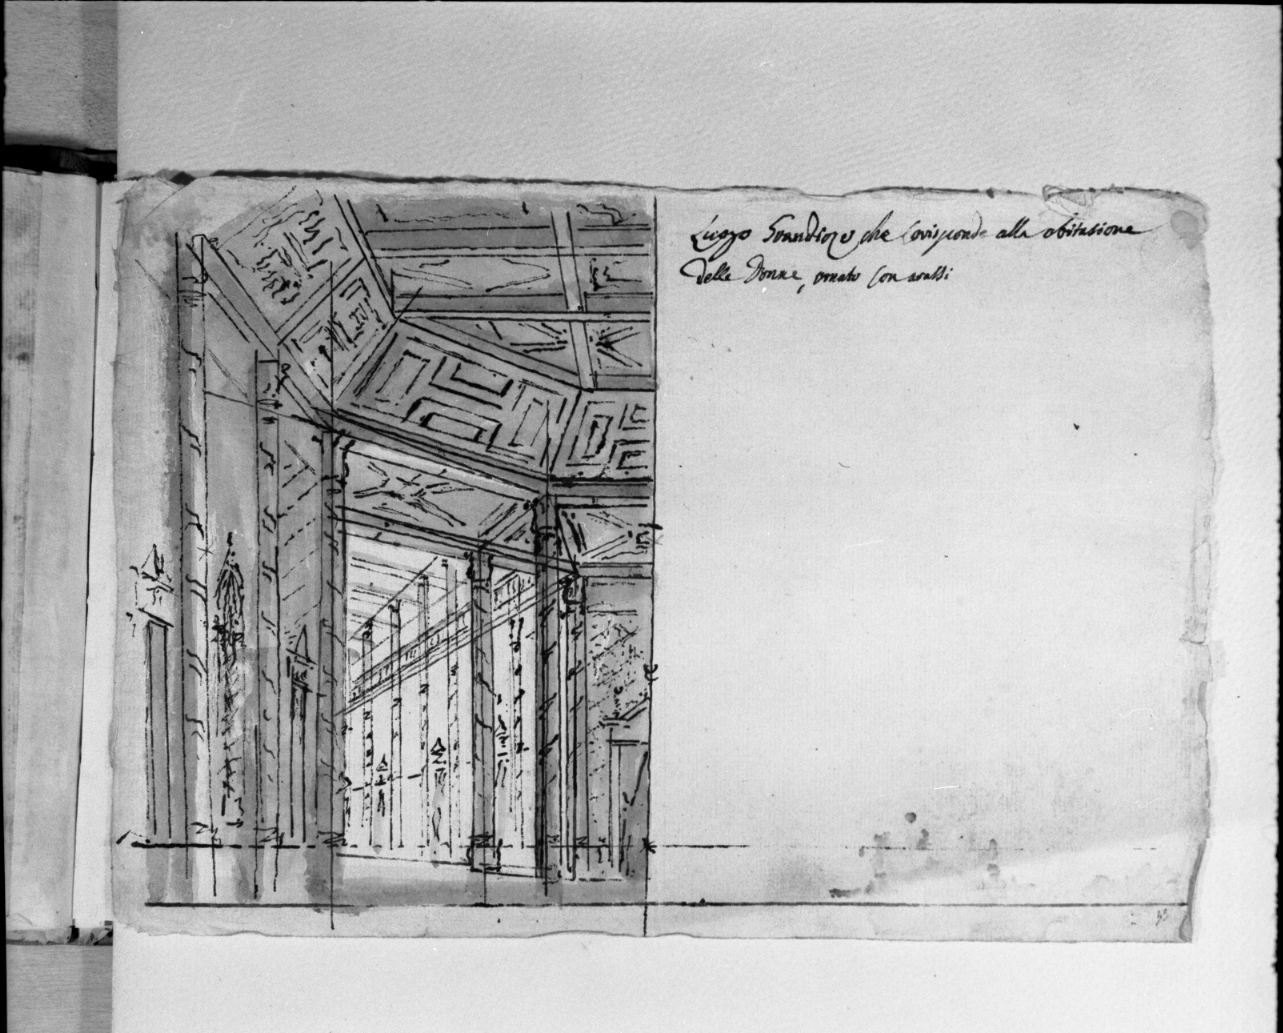 Luogo Grandiozo che Corisponde alla abitazione
delle Donne, ornato Con arassi